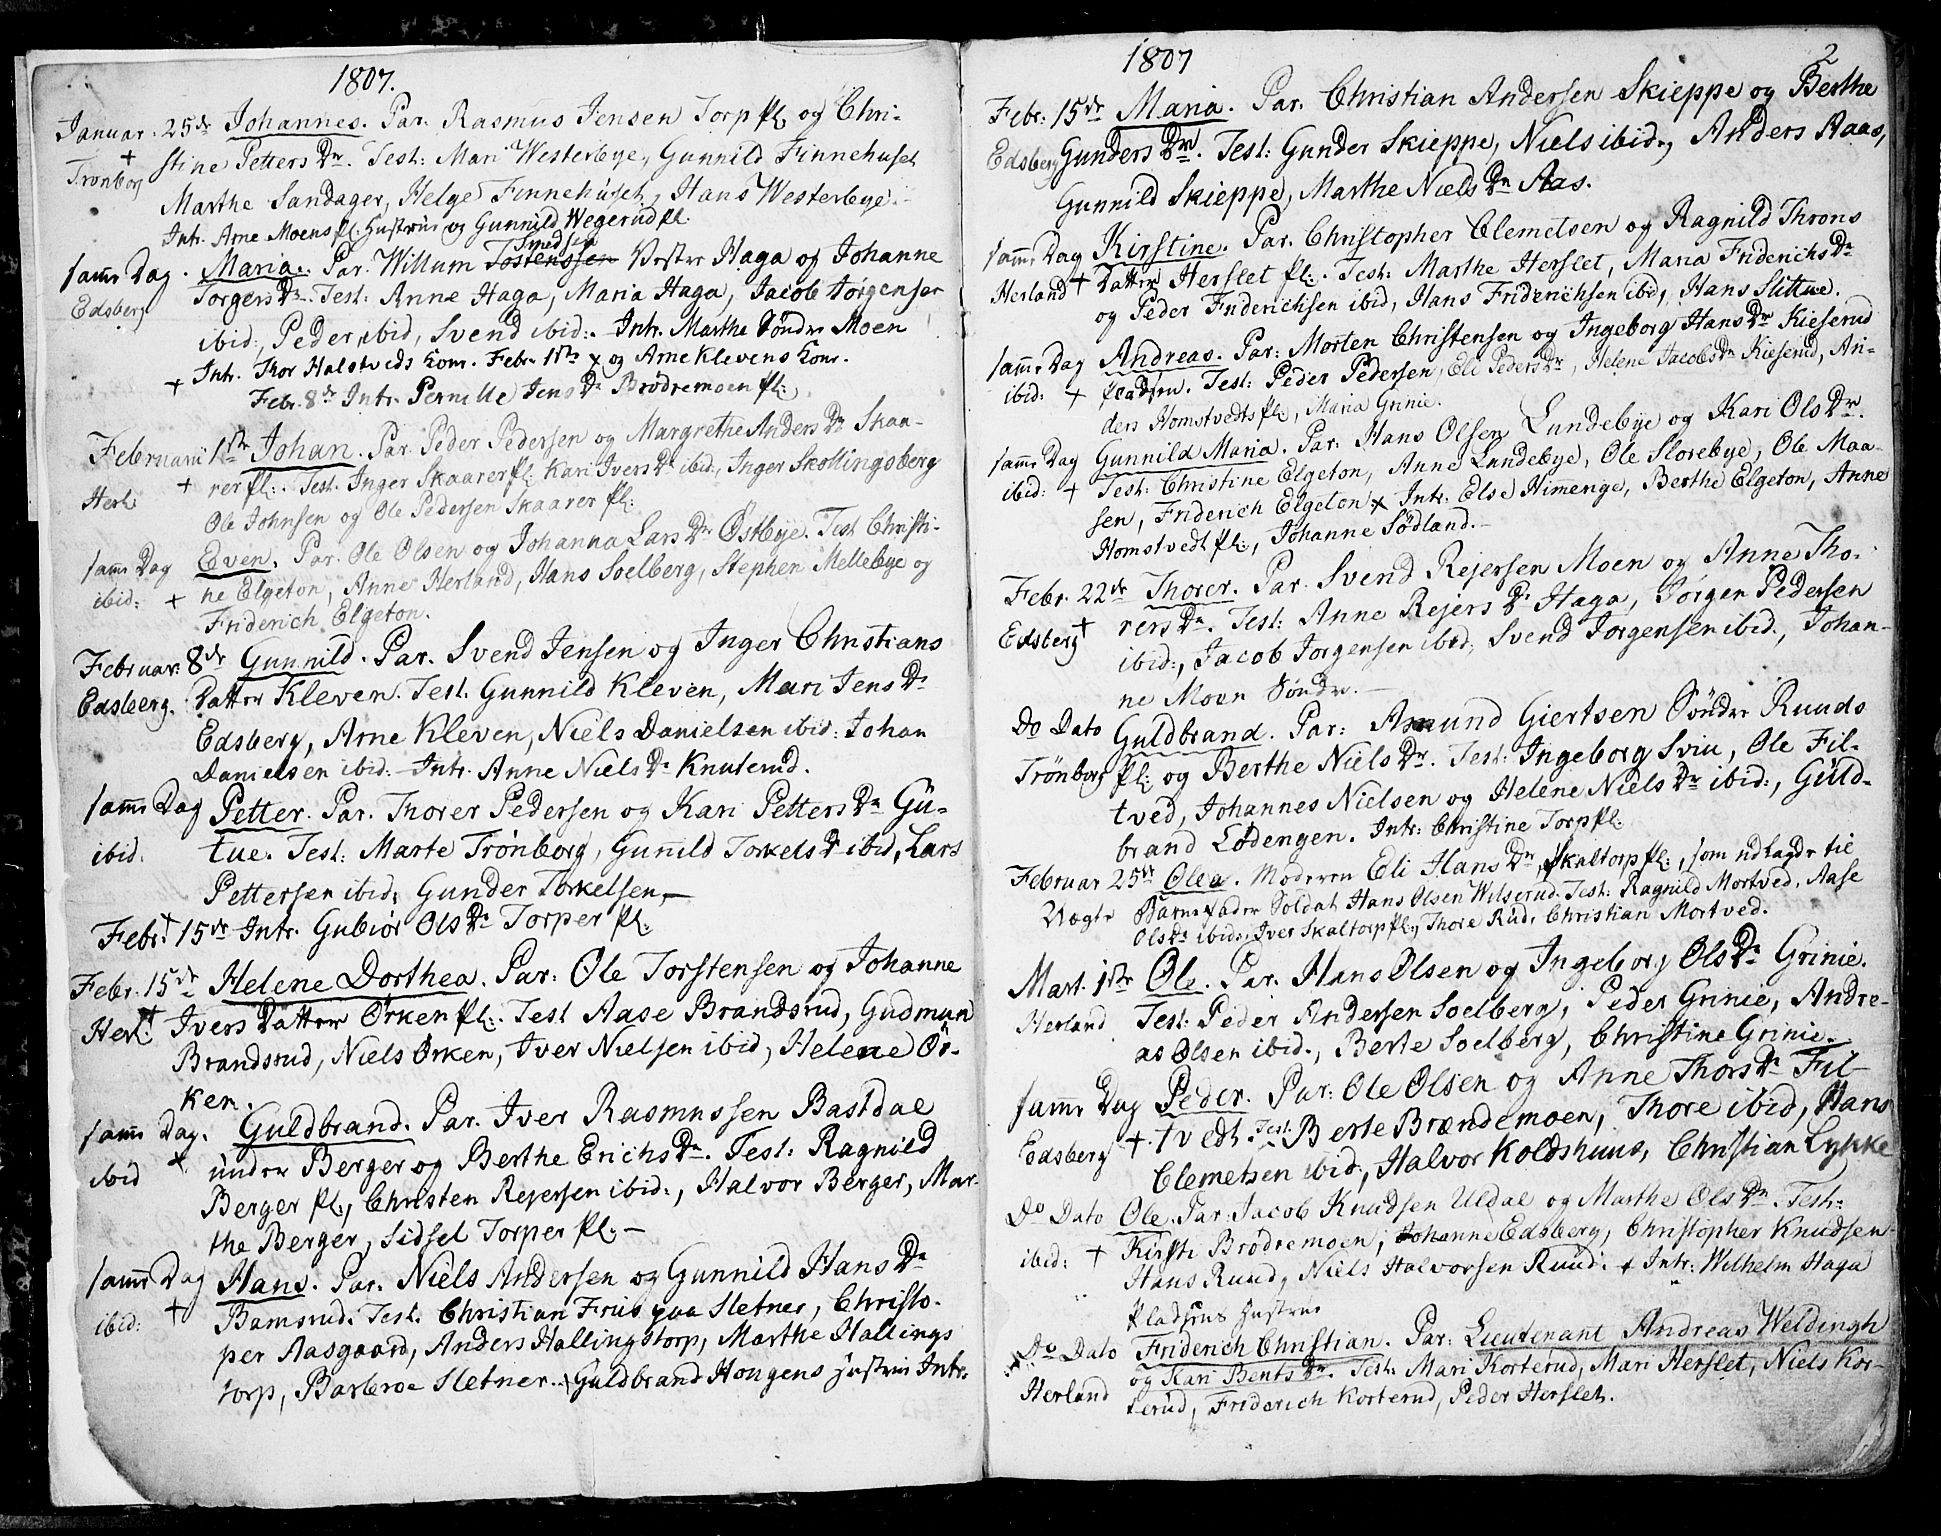 1807.
Januar: 25de Johannes. Par. Rasmus Jensen Torp Pl. og Chri-
Trønborg + stine Petters Dr. Test: Mari Westerbye, Gunnild Finnehuset
Marthe Sandager, Helge Finnehuset, Hans Westerbye.
Intr. Arne Moens Pl. Hustrue og Gunnild Wegerud Pl.
Smedsen
samme Dag. Maria. Par. Willum Tostenssen Vester Haga og Johanne
Edsberg Torgers Dr. Test: Anne Haga, Maria Haga, Jacob Jørgenser
ibid., Peder ibid, Svend ibid:. Intr. Marthe Søndre Moen
+ Intr. Thor Halstveds Kone. Febr. 1ste x og Arne Klevens Kone.
Febr. 8de Intr. Pernille Jens Dr Brødremoen Pl.
Februarii 1ste Johan. Par. Peder Pedersen og Margrethe Anders Dr Skaa-
Herl: + rer Pl:. Test. Inger Skaarer Pl: Kari Ivers Dr ibid., Inger Skollingsberg
Ole Johnsen og Ole Pedersen Skaarer Pl:
samme Dag Even. Par. Ole Olsen og Johanna Lars Dr Østbye. Test Christi-
ibid: + ne Elgeton, Anne Herland, Hans Soelberg, Stephen Mellebye og
Friderich Elgeton.
Februar: 8de Gunnild. Par. Svend Jensen og Inger Christians
Edsberg. Datter Kleven. Test. Gunnild Kleven, Mari Jens Dr
Edsberg, Arne Kleven, Niels Danielsen ibid: Johan
Danielsen ibid:- Intr. Anne Niels Dr Knuterud.
samme Dag Petter. Par. Thorer Pedersen og Kari Petters Dr Gü-
ibid. tue. Test: Marte Trønborg, Gunnild Torkels Dr ibid, Lars
Pettersen ibid: Gunder Torkelsen,-
Febr. 15de Intr. Gubiør Ols Dr Torper Pl.
Febr. 15de Helene Dorthea. Par: Ole Torstensen og Johanne
Herl: + Ivers Datter Ørken Pl:. Test Aase Brandsrud, Gudmun
Brandsrud, Niels Ørken, Iver Nielsen ibid, Helene Ør-
ken.
samme Dag. Guldbrand. Par. Iver Rasmussen Bastdal
ibid x under Berger og Berthe Erichs Dr. Test: Ragnild
Berger Pl., Christen Rejersen ibid:, Halvor Berger, Mar-
the Berger, Sidsel Torper Pl.-
samme Dag Hans. Par. Niels Andersen og Gunnild Hans Dr
ibid: + Bamsrud: Test. Christian Friis paa Sletner, Christo-
per Aasgaard, Anders Hallingstorp, Marthe Hallings
torp, Barbroe Sletner. x Guldbrand Hongens Hustrue Intr.
1807
2
Febr: 15de Maria. Par. Christian Andersen Skieppe og Berthe
Edsberg Gunders Dr. Test: Gunder Skieppe, Niels ibid., Anders Aaas,
Gunnild Skieppe, Marthe Niels Dr Aas.
samme Dag Kirstine. Par. Christopher Clemetsen og Ragnild Throns
Herland + Datter Herslet Pl:. Test: Marthe Herslet, Maria Friderichs Dr
og Peder Friderichsen ibid, Hans Friderichsen ibid, Hans Slittue.
samme Dag Andreas. Par: Morten Christensen og Ingeborg Hans Dr Kieserud
ibid: + Pladsen. Test: Peder Pedersen, Eli Peders Dr, Helene Jacobs Dr Kieserud, An-
ders Homstvedts Pl., Maria Grinie.
samme Dag Gunnild Maria. Par. Hans Olsen Lundebye og Kari Ols Dr.
ibid: + Test: Christine Elgeton, Anne Lundebye, Ole Slorebye, Ole Maa-
sen, Friderich Elgeton x Intr. Else Himerige, Berthe Elgeton, Anne
Homstvedt Pl:, Johanne Sødland.-
Febr. 22de Thorer. Par. Svend Rejersen Moen og Anne Tho-
Edsberg + rers Dr. Test: Anne Rejers Dr Haga, Jørgen Pedersen
ibid:, Jacob Jorgensen ibid, Svend Jorgensen ibid., Johan-
ne Moen Søndre.-
Do Dato Guldbrand. Par: Amund Giertsen Søndre Ruuds
Trönborg Pl: og Berthe Niels Dr. Test: Ingeborg Sviu, Ole Fil-
tved, Johannes Nielsen og Helene Niels Dr ibid:, Guld-
brand Lödengen. Intr: Christine Torp Pl:
Februar 25de Olea. Moderen Eli Hans Dr, Skaltorp Pl:, som udlagde til
Vægte Barnefader Soldat Hans Olsen Wilserud. Test: Ragnild Mortved, Aase
Ols Dr ibid., Iver Skaltorp Pl., Thore Rud, Christian Mortved.
Mart. 1ste Ole. Par. Hans Olsen og Ingeborg Ols Dr Grinie.
Herland Test: Peder Andersen Soelberg, Peder Grinie, Andre-
as Olsen ibid., Berte Soelberg, Christine Grinie.
samme Dag Peder. Par: Ole Olsen og Anne Thors Dr Fil-
Edsberg + tvedt. Test: Berte Brændemoen, Thore ibid, Hans
Clemetsen ibid., Halvor Koldshuus, Christian Lykke
Do Dato Ole. Par: Jacob Knudsen Uldal og Marthe Ols Dr. Test:
ibid: + Kirsti Brødremoen, Johanne Edsberg, Christopher Knudsen
Hans Ruud, Niels Halvorsen Ruud: + Intr: Wilhelm Haga
Pladsens Hustrue
Do Dato Friderich Christian. Par: Lieutenant Andreas Weldingh
Herland og Kari Bents Dr. Test: Mari Korterud, Mari Herslet, Niels Kor-
terud, Friderich Korterud, Peder Herslet.